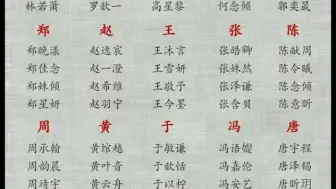 林若萧 罗歆一 高星黎 何念倾 郭奕晟
郑 赵 王 张 陈
郑晚漾 赵逸宸 王沐言 张皓卿 陈献周
郑佳念 赵一澄 王雪妍 张姝然 陈令曦
郑姝倾 赵希维 王敬予 张泽谦 陈念倾
郑星妍 赵羽宁 王今墨 张含贝 陈意昕
周 黄 于 冯 唐
周承翰 黄绾越 于敏谦 冯语嫣 唐宇程
周韵晨 黄叶音 于歆恬 冯嘉伦 唐泽锡
周靖宇 黄云舟 于以柠 冯安艺 唐昕玥